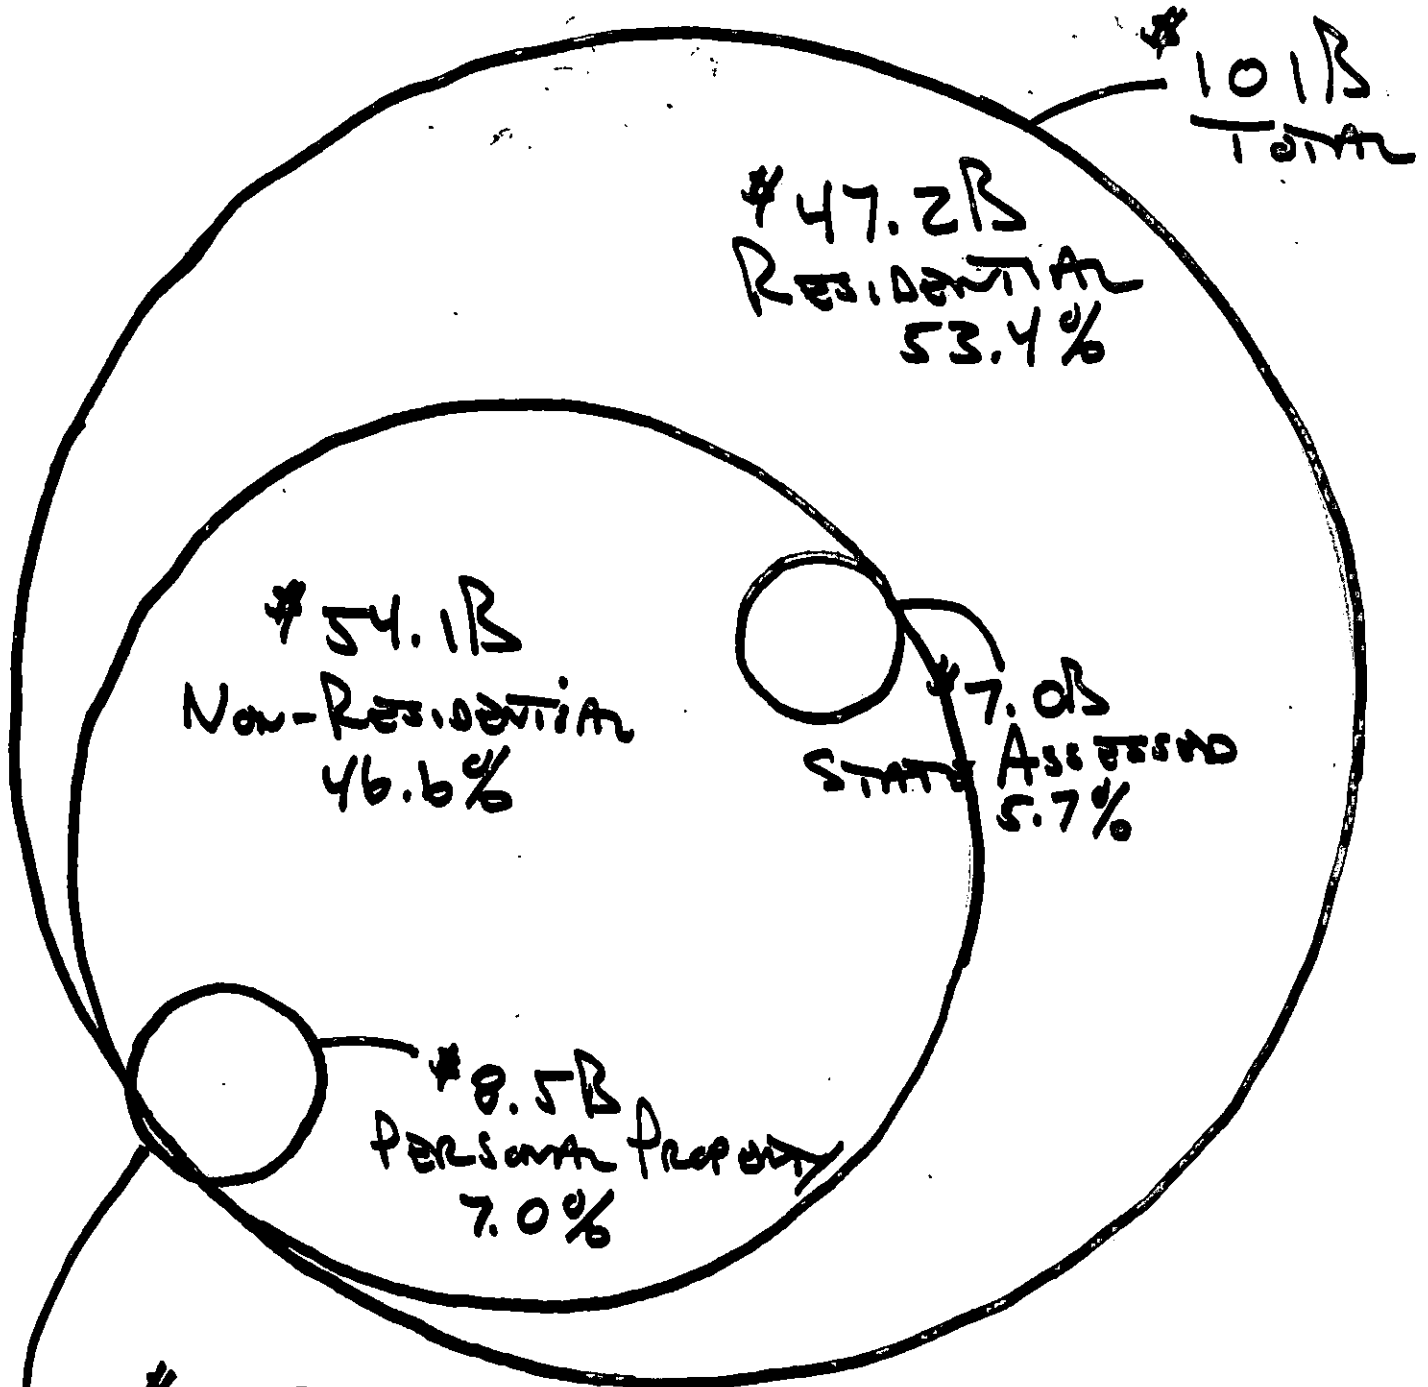 $101B
TOTAL
$47.2B
RESIDENTIAL
53.4%
$54.1B
NON-RESIDENTIAL
46.6%
$7.0B
STATE ASSESSED
5.7%
$8.5B
PERSONAL PROPERTY
7.0%
$